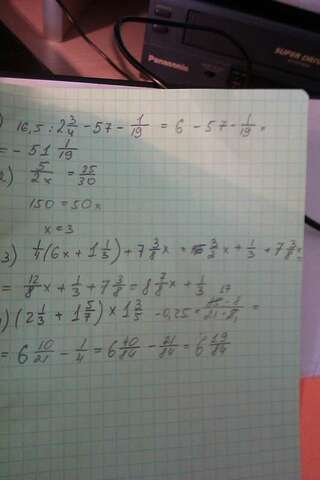 Panasonic
SUPER DRIVE
) 16,5 : 2 3/4 - 57 - 1/19 = 6 - 57 - 1/19 =
= - 51 1/19
2) 5/2x = 25/30
150 = 50x
x = 3
3) 1/4 (6x + 1 1/3) + 7 3/8 x = 3/2 x + 1/3 + 7 3/8 x
= 12/8 x + 1/3 + 7 3/8 = 8 7/8 x + 1/3
) (2 1/3 + 1 5/7) × 1 3/5 - 0,25 =
= 6 10/21 - 1/4 = 6 40/84 - 21/84 = 6 19/84